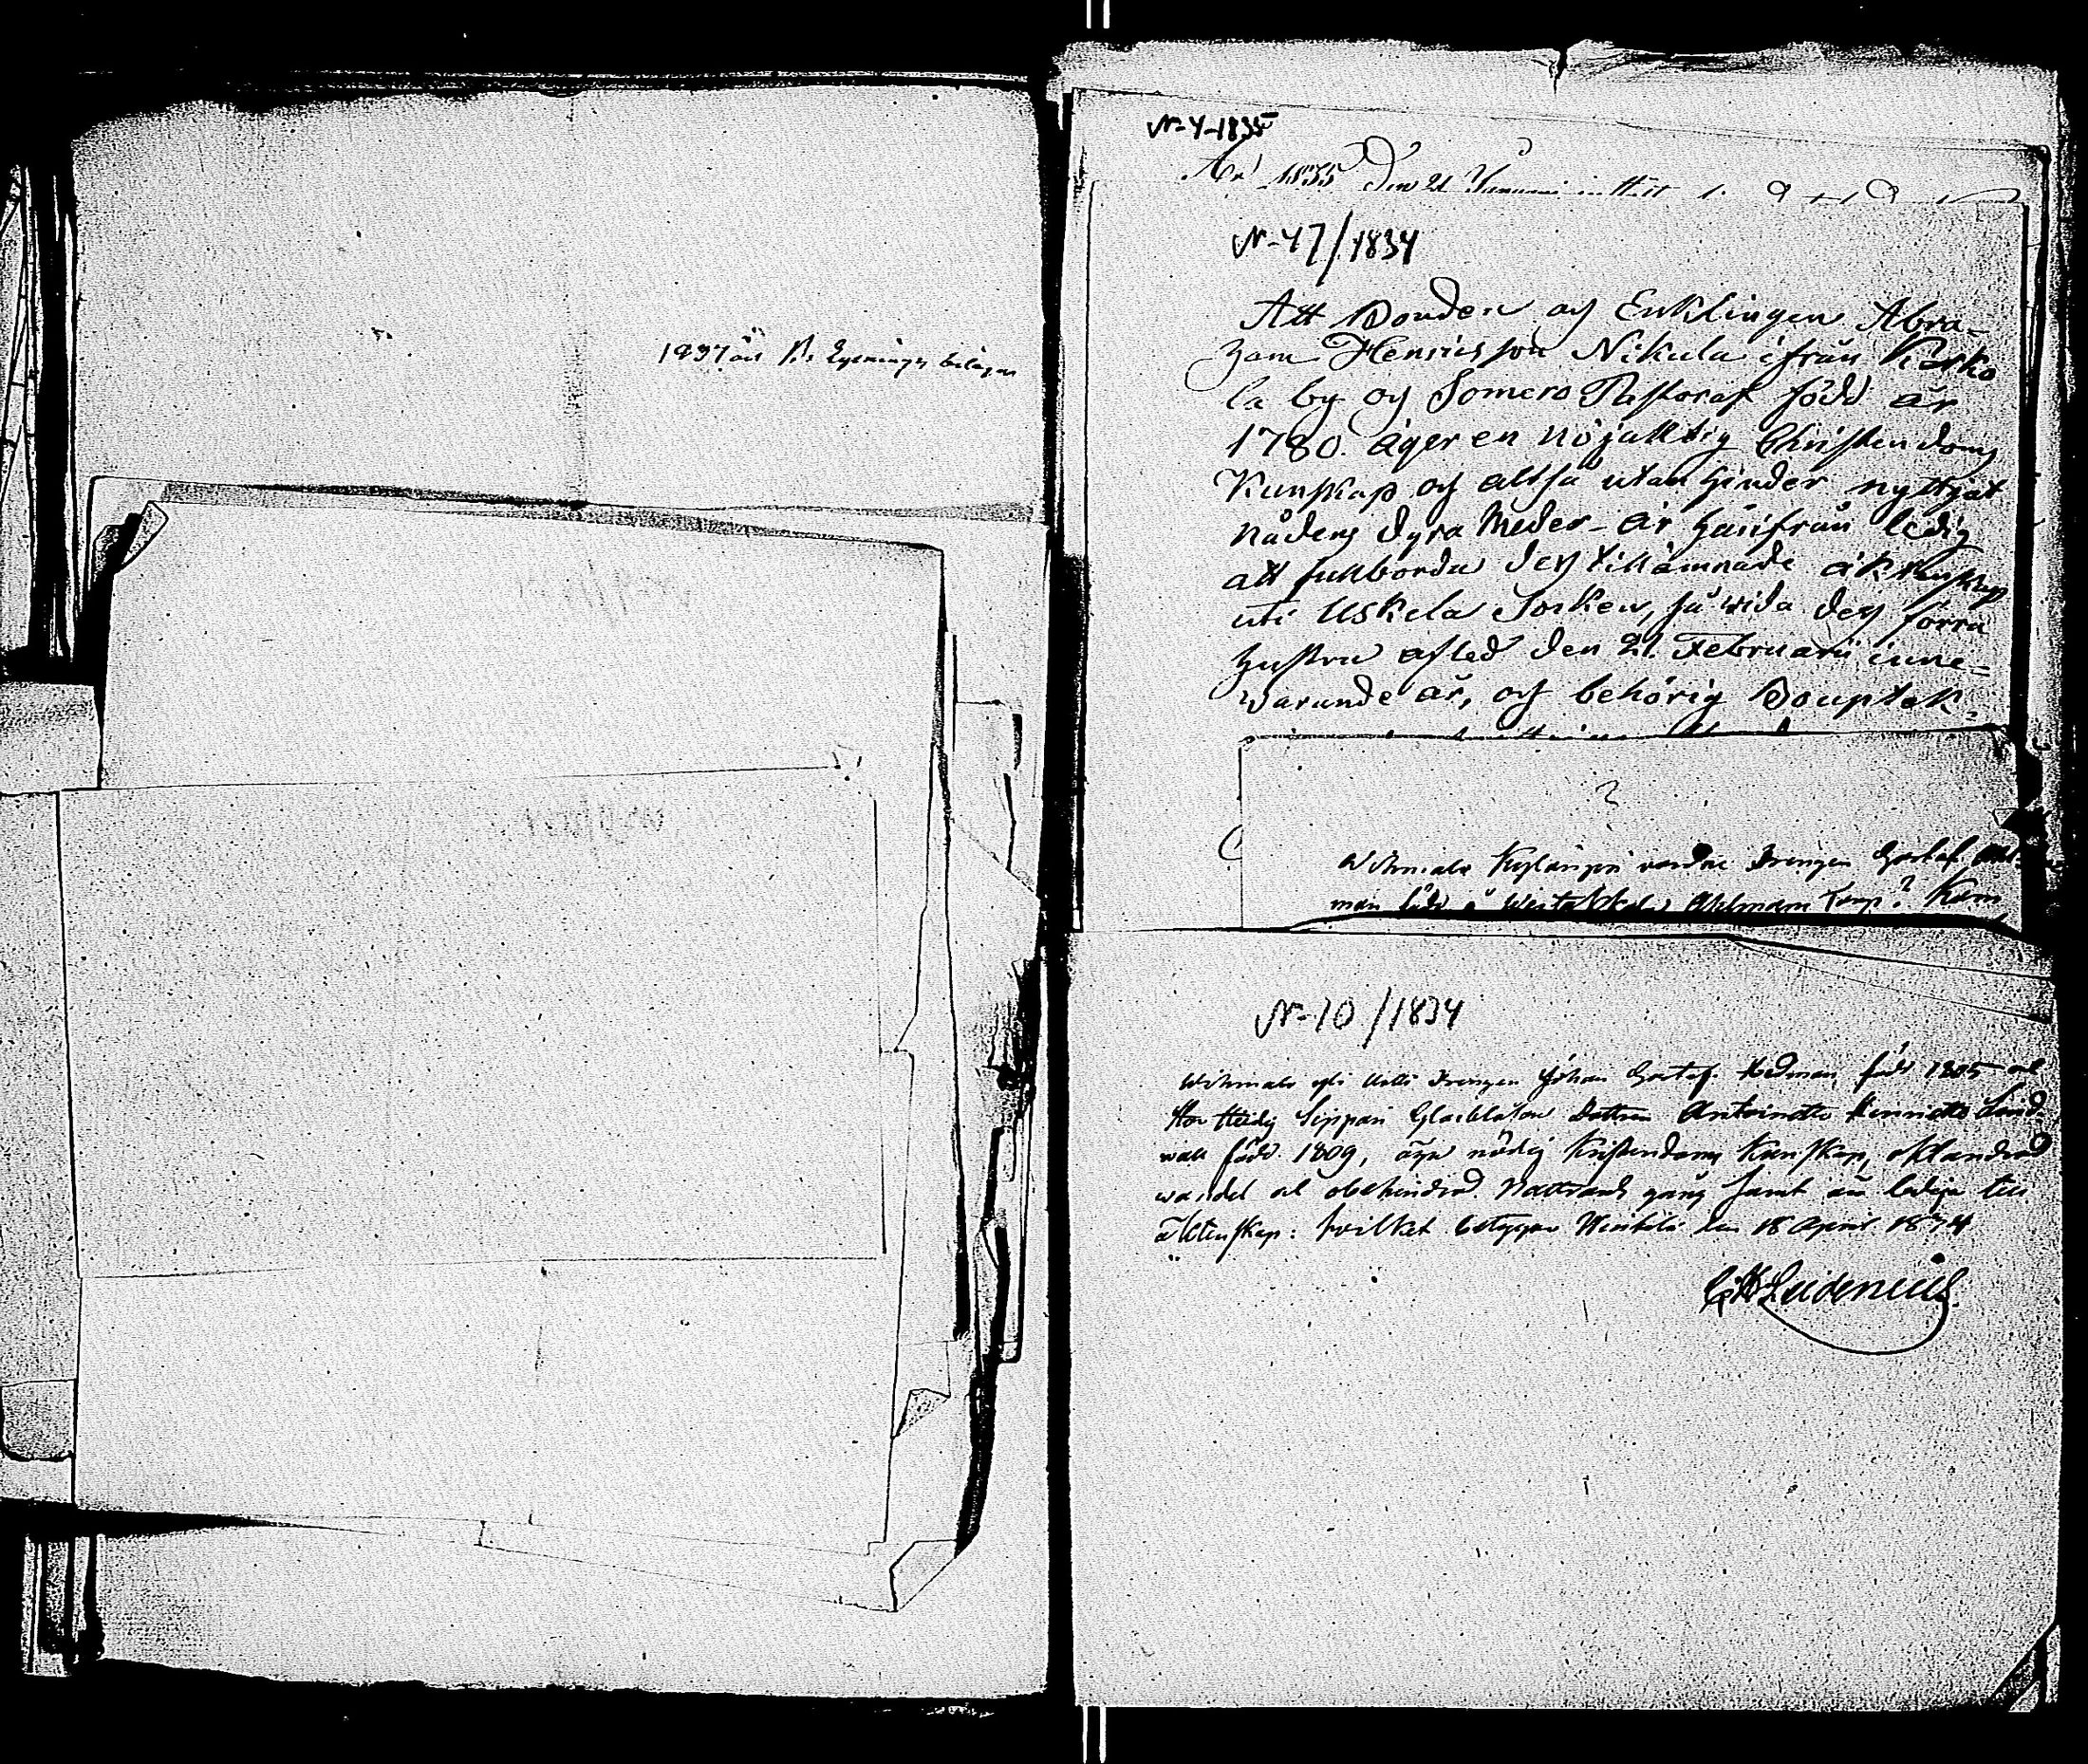 1837 års Lysnings bilagor
N-4-1835
År 1835 Den 21 Januarii
N-47/1834
Att Bonden och Enklingen Abra-
ham Henricsson Nikula ifrån Kerko
la by och Somero Pastorat född år
1780. äger en nöjaktig Christendoms
Kunskap och altså utan hinder nyttjat
nådens dyra Medel - är härifrån ledig
att fullborda des tillämnade äktenskap
uti Uskela Socken, så vida des förra
hustru afled den 21. Februarii inne-
varande år, och behörig Bouptek-
Wihmalo Kylänpä Drengen Gustaf Ahl-
man född i Ahlman Kom
N-10/1834
Wihmalo yli Drengen Johan Gustaf Hedman, född 1805 och
Seppäri Dottren Antoinetta Lind
wall född 1809, äga nödig Kristendoms Kunskap, oklandrad
wandel och obehindrad Nattvards gång samt äro lediga till
äktenskap: hvilket betygar den 18 April 1834
C.H. Leidenius.